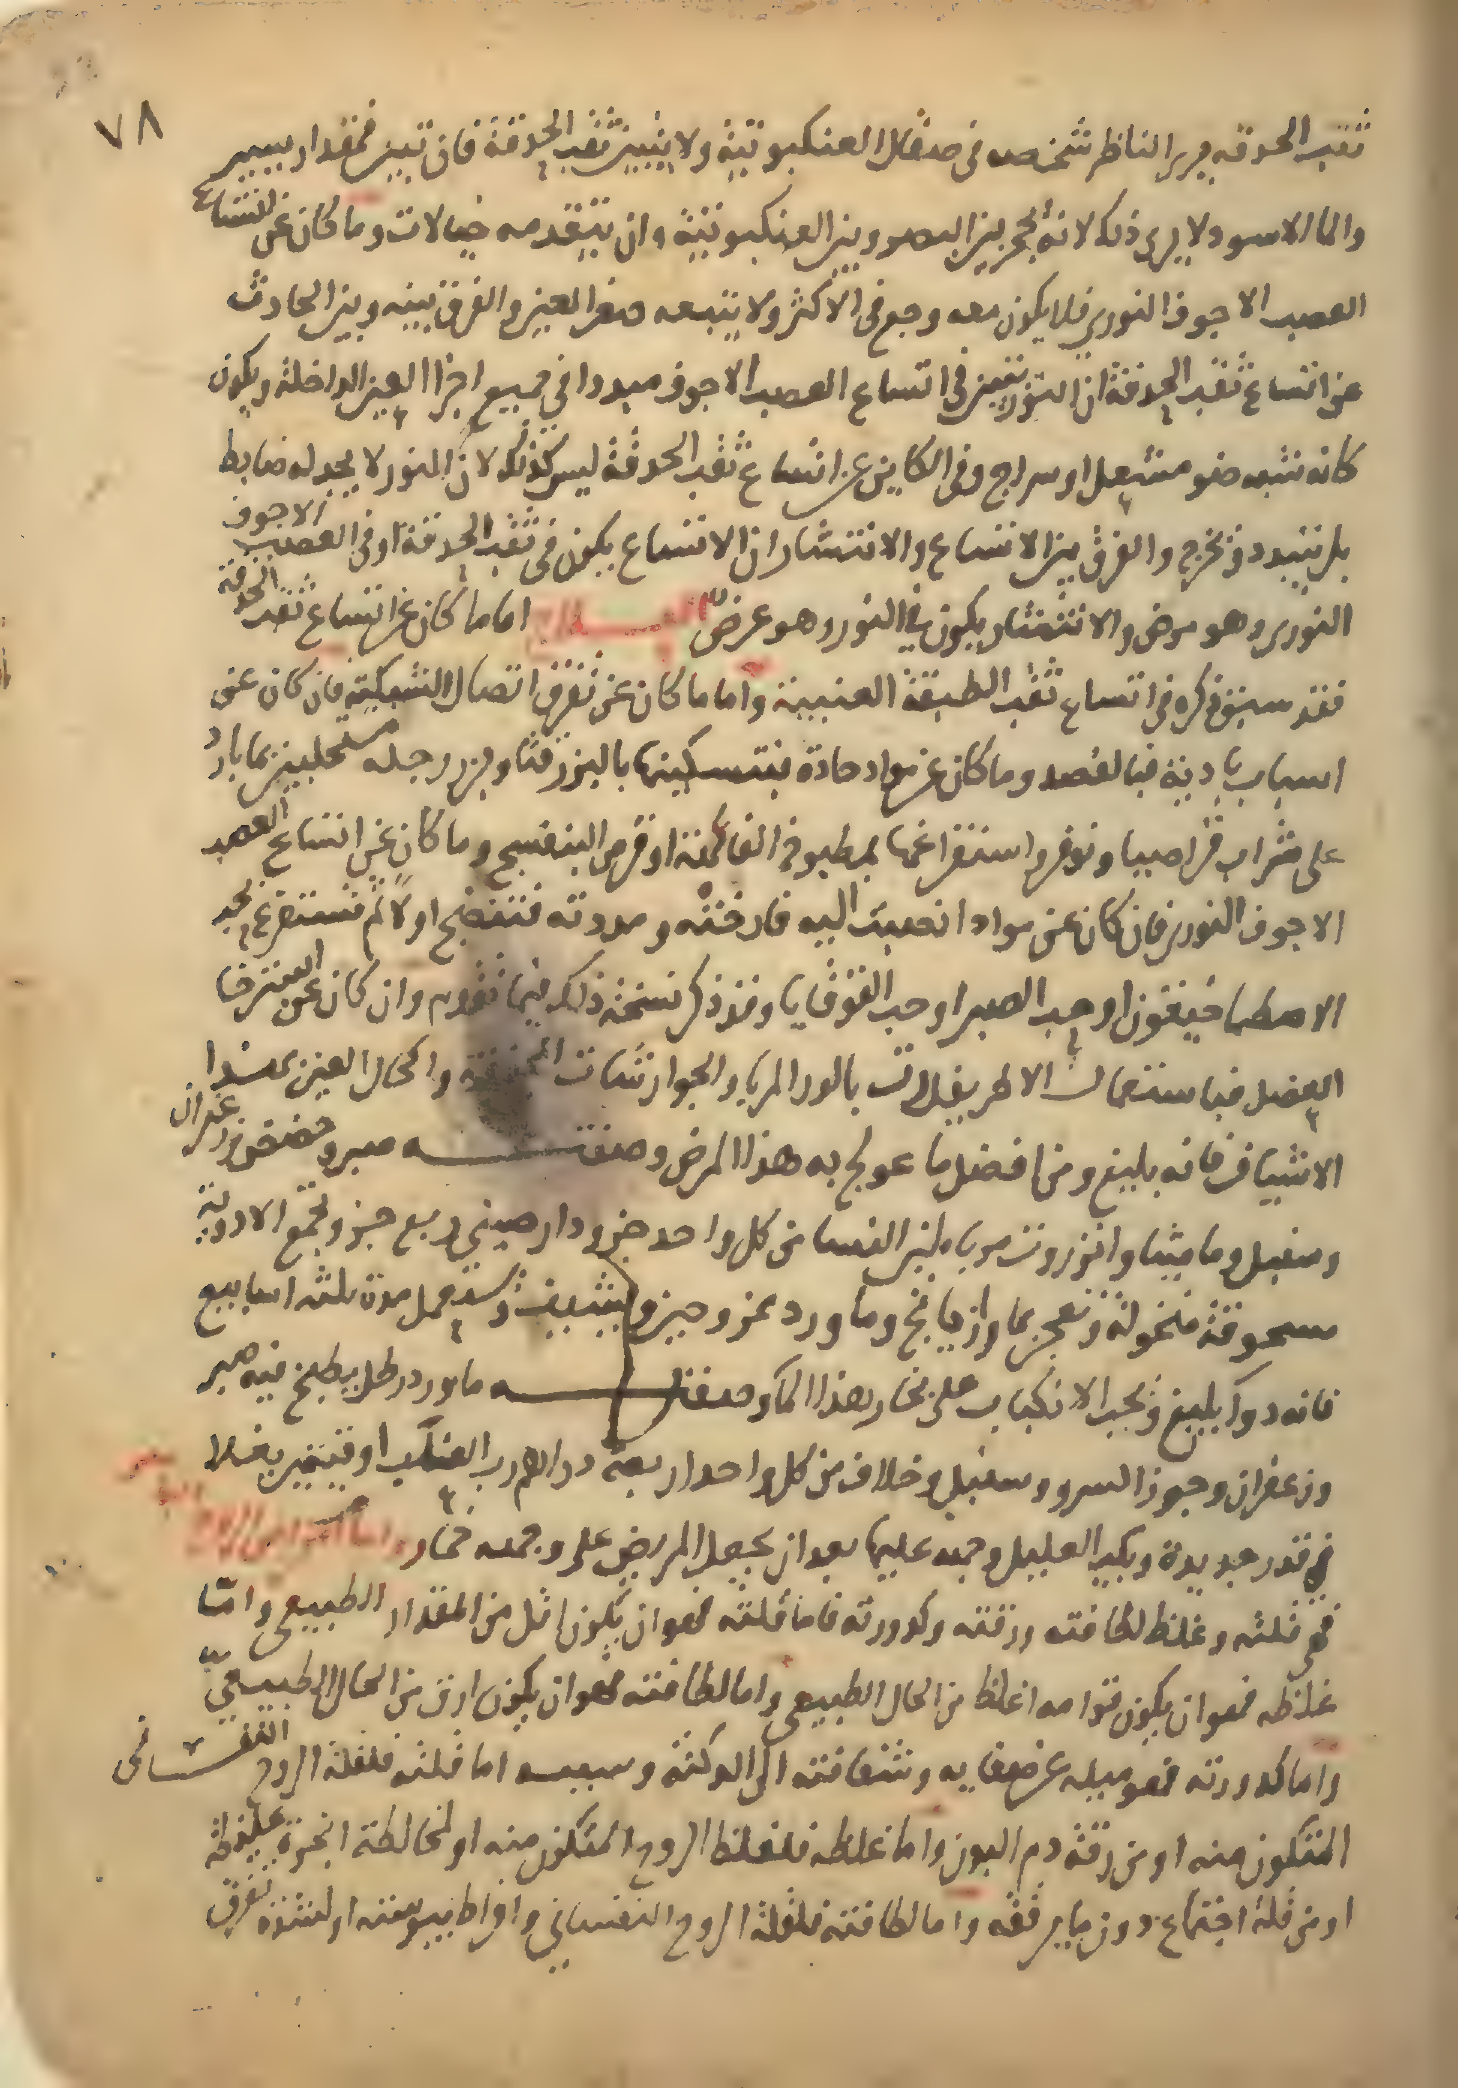 ٧٨
ثقب الحدقه ويرى الناظر شخصه فى صقال العنكبوتية ولا يتبين ثقب الحدقة فان تبين فمقدار يسير
والما الاسود لا يرى ذلك لانه يحجز بين البصر وبين العنكبوتية وان يتقدمه خيالات وما كان عن اتساع
العصب الاجوف النورى فلا يكون معه وجع فى الاكثر ولا يتبعه صغر العين والفرق بينه وبين الحادث
عن اتساع ثقب الحدقة ان النور يتبين فى اتساع العصب الاجوف مبددا فى جميع اجزا العين الداخلة ويكون
كانه شبه ضو مشعل او سراج وفى الكاين عن اتساع ثقب الحدقة ليس كذلك لان النور لا يجد له ضابط
بل يتبدد ويخرج والفرق بين الاتساع والانتشار ان الاتساع يكون فى ثقب الحدقة او فى العصب الاجوف
النورى وهو مرض والانتشار يكون فى النور وهو عرض العـــلاج اما ما كان عن اتساع ثقب الحدقة
فقد سبق ذكره فى اتساع ثقب الطبقة العنبية واما ما كان عن تفرق اتصال الشبكية فان كان عن
اسباب بادية فبالفصد وما كان عن مواد حادة فبتسكينها بالبزر قثا وبزر رجله مستحلبين بما بارد
على شراب قراصيا ونوفر واستفراغها بمطبوخ الفاكهة او قرص البنفسج وما كان عن اتساع العصب
الاجوف النورى فان كان عن مواد انصبت اليه فارخته ومددته فتنضج اولا ثم تستفرغ بحب
الاصطماخيقون او حب الصبر او حب القوقايا وقد ذكر نسخة ذلك فيما تقدم وان كان عن استرخا
العضل فباستعمال الاطريفلات بالورد المربا والجوارشات المجففة واكحال العين بهذا
الاشياف فانه بليغ ومن افضل ما عولج به هذا المرض وصفتـــه صبر وحضض وزعفران
وسنبل وماميثا وانزروت مرباه بلبن النسا من كل واحد جزو دارصيني ربع جزو تجمع الادوية
مسحوقة منخولة وتعجن بما رازيانج وماورد ممزوجين ويشيف ويستعمل مدة ثلثه اسابيع
فانه دوا بليغ ويجب الانكباب على بخار هذا الما وصفتـــه ماورد رطل يطبخ فيه صبر
وزعفران وجوز السرو وسنبل وخلاف من كل واحد اربعة دراهم رب العنب اوقيتين يغلا
فى قدر جديدة ويكب العليل وجهه عليها بعد ان يجعل المريض على وجهه خمار واما امراض الروح الباصر
فهى قلته وغلظ لطافته ورقته وكدورته فاما قلته فهو ان يكون اقل من المقدار الطبيعى واما
غلظه فهو ان يكون قوامه اغلظ من الحال الطبيعى واما لطافته فهو ان يكون ارق من الحال الطبيعى
واما كدورته فهو ميله عن صفايه وشفافته الى الدكنة وسببه اما قلته فلقلة الروح النفسانى
المتكون منه او من رقة دم البدن واما غلظه فلغلظ الروح المتكون منه او لمخالطة ابخرة غليظة
او من قلة اجتماع دون ما يرققه واما لطافته فلقلة الروح النفسانى وافراط يبوسته او لشدة تفرق